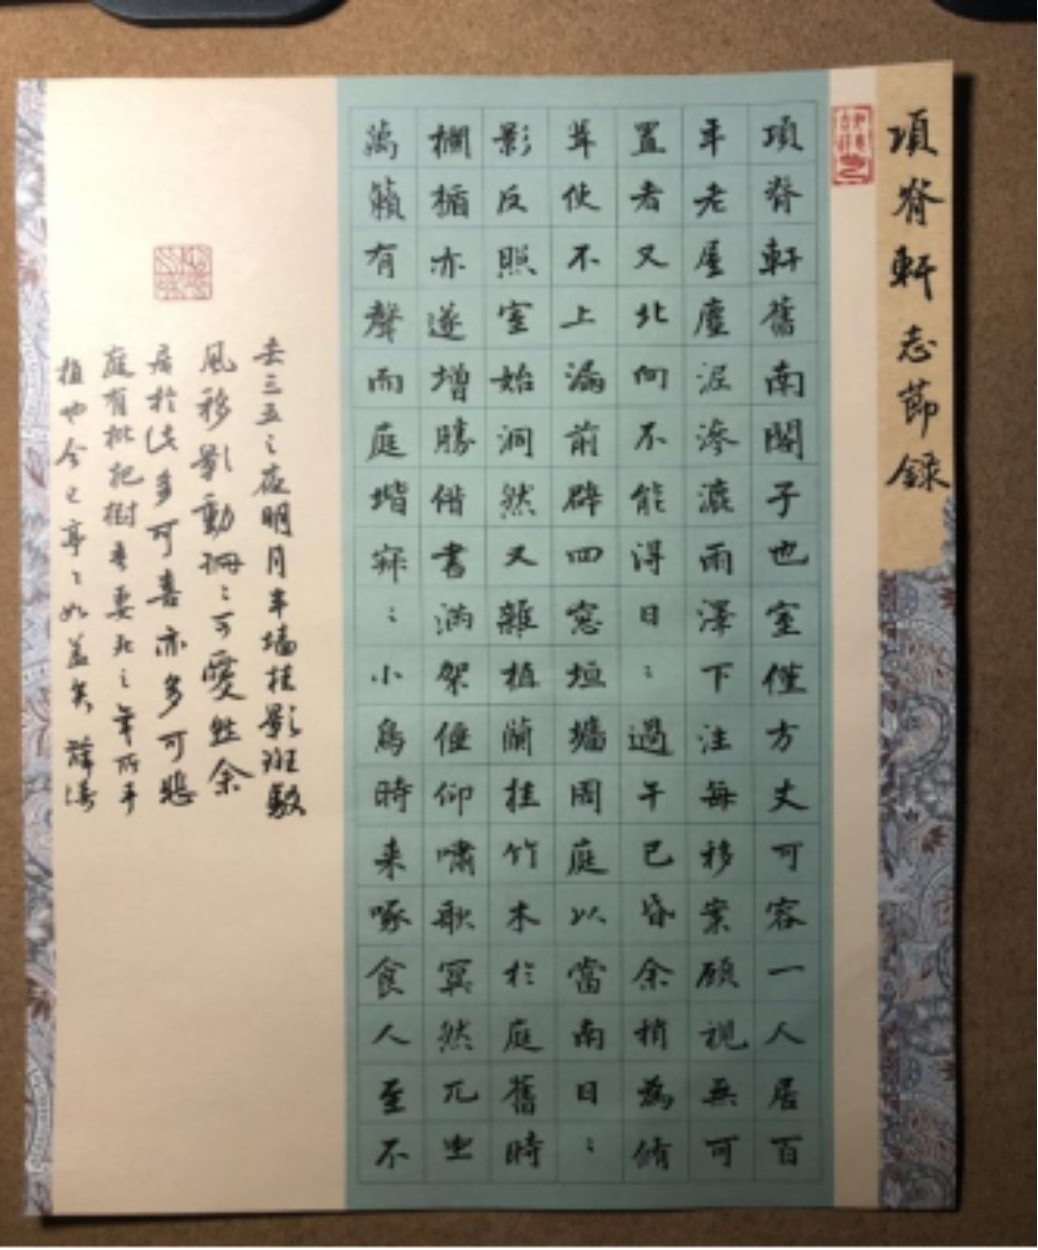 項脊軒志節錄
項脊軒舊南閣子也室僅方丈可容一人居百
年老屋塵泥滲漉雨澤下注每移案顧視無可
置者又北向不能得日〻過午已昏余稍為脩
葺使不上漏前辟四窓垣墻周庭以當南日〻
影反照室始洞然又雜植蘭桂竹木於庭舊時
欄楯亦遂增勝借書滿架偃仰嘯歌冥然兀坐
萬籟有聲而庭堦寂〻小鳥時来啄食人至不
去三五之夜明月半墻桂影斑駁
風移影動珊〻可愛然余
居於此多可喜亦多可悲
庭有枇杷樹吾妻死之年所手
植也今已亭〻如蓋矣